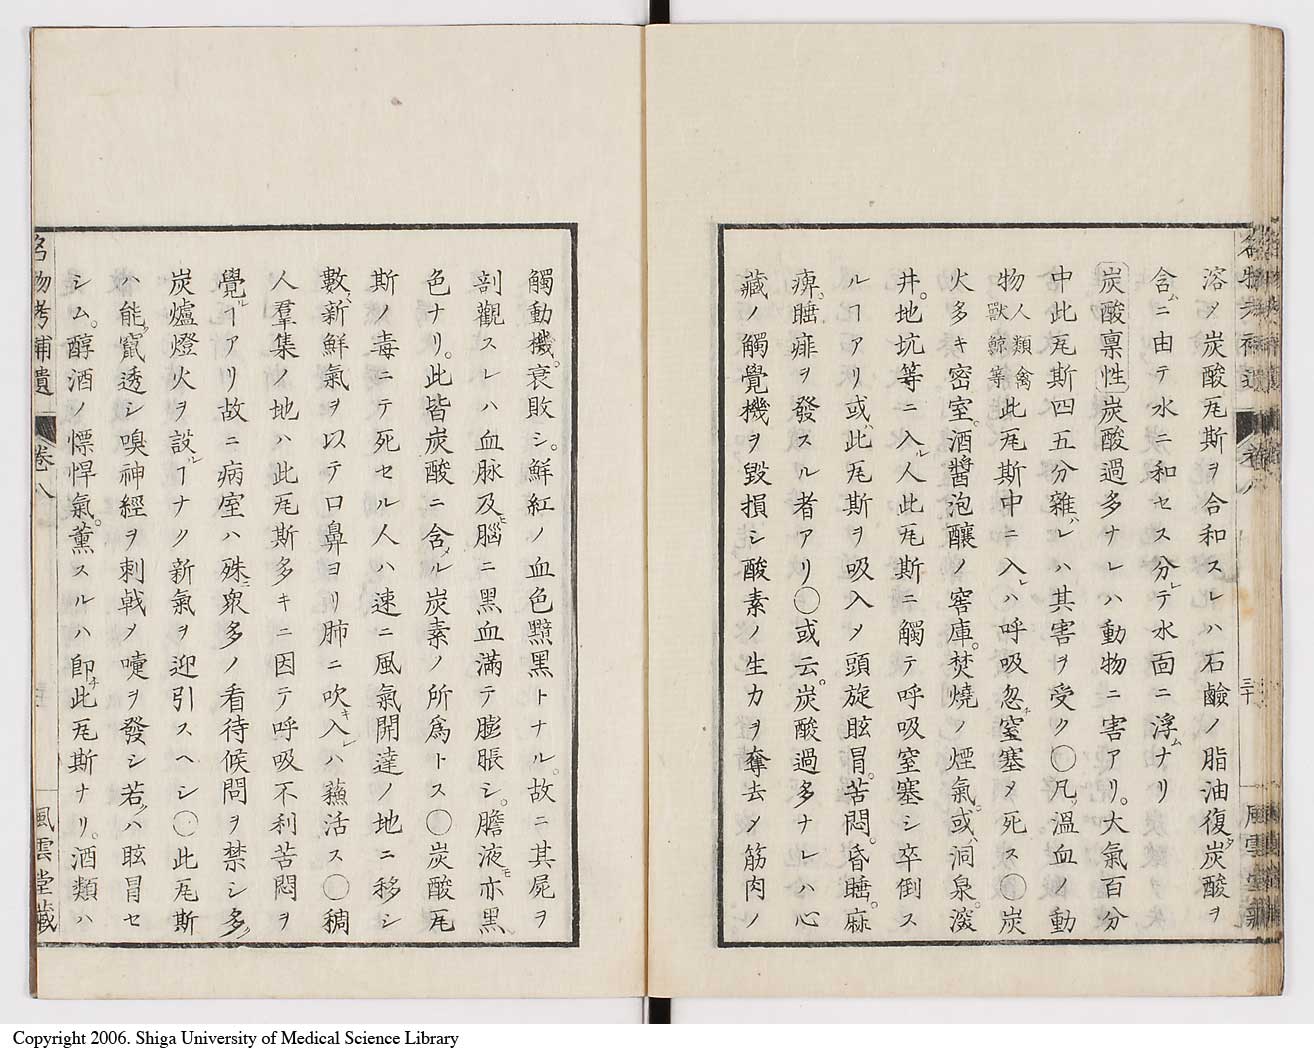 溶メ炭酸瓦斯ヲ合和スレハ石鹸ノ脂油復タ炭酸ヲ
含ムニ由テ水ニ和セス分レテ水面ニ浮ムナリ
炭酸禀性 炭酸過多ナレハ動物ニ害アリ。大氣百分
中此瓦斯四五分雜レハ其害ヲ受ク〇凡ソ溫血ノ動
物人類禽獸鯨等此瓦斯中ニ入レハ呼吸忽チ窒塞メ死ス〇炭
火多キ密室。酒醬泡釀ノ窖庫。焚燒ノ煙氣。或ハ洞泉。
井。地坑等ニ入ル人此瓦斯ニ觸テ呼吸窒塞シ卒倒ス
ルヿアリ或ハ此瓦斯ヲ吸入メ頭旋眩冒。苦悶。昏睡。麻
痺。睡痱ヲ發スル者アリ〇或云。炭酸過多ナレハ心
藏ノ觸覺機ヲ毀損シ酸素ノ生力ヲ奪去メ筋肉ノ
名物考補遺
卷八
三十
風雲堂藏
觸動機。衰敗シ。鮮紅ノ血色黯黑トナル。故ニ其屍ヲ
剖觀スレハ血脉及腦モニ黑血滿テ膨脹シ。膽液亦モ黑
色ナリ。此皆炭酸ニ含メル炭素ノ所爲トス〇炭酸瓦
斯ノ毒ニテ死セル人ハ速ニ風氣開達ノ地ニ移シ
數新鮮氣ヲ以テ口鼻ヨリ肺ニ吹キ入レハ蘓活ス〇稠
人羣集ノ地ハ此瓦斯多キニ因テ呼吸不利苦悶ヲ
覺ルヿアリ故ニ病室ハ殊ニ衆多ノ看待候問ヲ禁シ多ク
炭爐燈火ヲ設ルヿナク新氣ヲ迎引スヘシ〇此瓦斯
ハ能ク竄透シ嗅神經ヲ刺戟メ嚏ヲ發シ若クハ眩冒セ
シム。醇酒ノ慓悍氣。薰スルハ卽チ此瓦斯ナリ。酒類ハ
名物考補遺
卷八
風雲堂藏
Copyright 2006. Shiga University of Medical Science Library